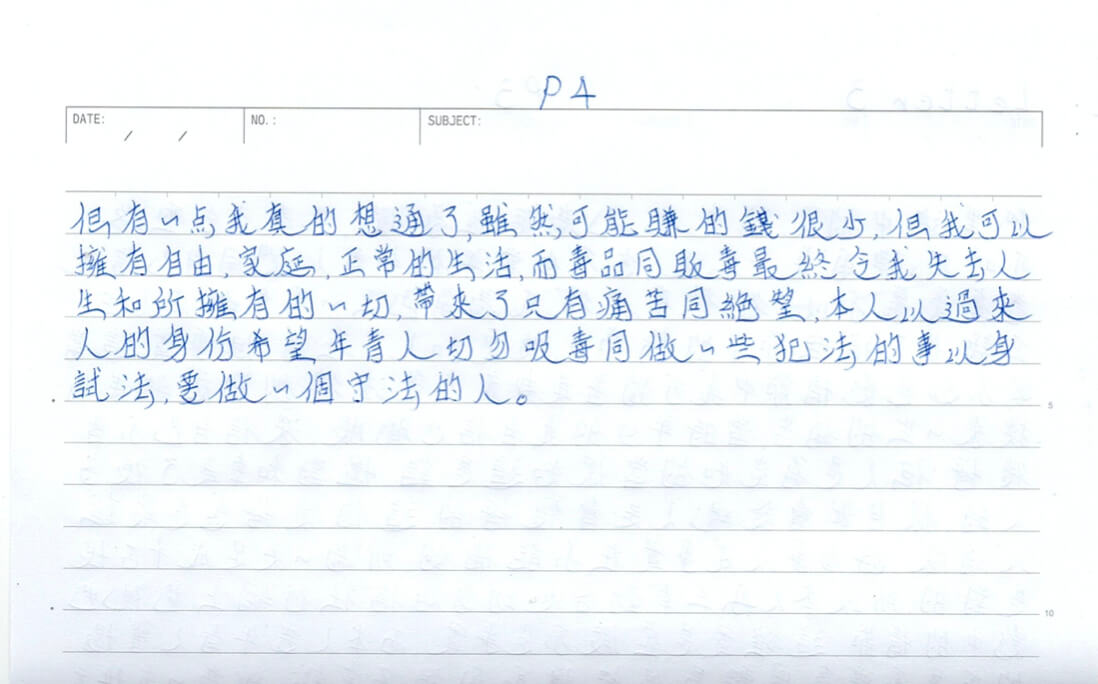 P4
DATE: / /
NO.:
SUBJECT:
但有一点我真的想通了,虽然可能賺的錢很少,但我可以
擁有自由,家庭,正常的生活,而毒品同販毒最終令我失去人
生和所擁有的一切,帶來了只有痛苦同絕望,本人以過來
人的身份希望年青人切勿吸毒同做一些犯法的事以身
試法,要做一個守法的人。
5
10